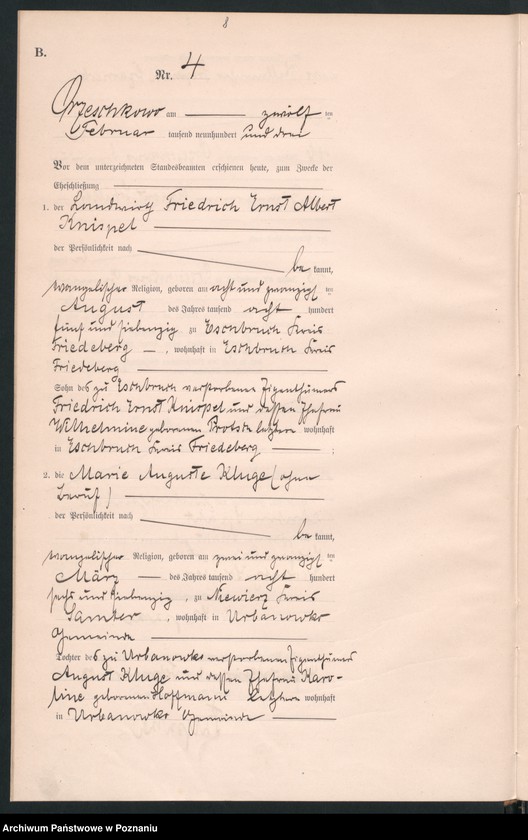 8
B.
Nr. 4
Orzeschkowo am zwölf ten
Februar tausend neunhundert und drei
Vor dem unterzeichneten Standesbeamten erschienen heute, zum Zwecke der
Eheschließung
1. der Landwirth Friedrich Ernst Albert
Knispel
der Persönlichkeit nach
be kannt,
evangelischer Religion, geboren am acht und zwanzigsten
August des Jahres tausend acht hundert
fünf und siebenzig zu Eschbruch Kreis
Friedeberg, wohnhaft in Eschbruch Kreis
Friedeberg
Sohn des zu Eschbruch verstorbenen Eigenthümers
Friedrich Ernst Knispel und dessen Ehefrau
Wilhelmine geborenen letztere wohnhaft
in Eschbruch Kreis Friedeberg ;
2. die Marie Auguste Kluge (ohne
Beruf)
der Persönlichkeit nach
be kannt,
evangelischer Religion, geboren am zwei und zwanzigsten
März des Jahres tausend acht hundert
sechs und siebenzig, zu Niewierz Kreis
Samter, wohnhaft in Urbanowko
Gemeinde
Tochter des zu Urbanowko verstorbenen Eigenthümers
August Kluge und dessen Ehefrau Karo-
line geborenen Hoffmann letztere wohnhaft
in Urbanowko Gemeinde
Archiwum Państwowe w Poznaniu